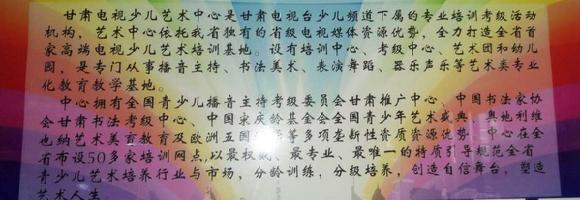 甘肃电视少儿艺术中心是甘肃电视台少儿频道下属的专业培训考级活动
机构，艺术中心依托我省独有的省级电视媒体资源优势，全力打造全省首
家高端电视少儿艺术培训基地。设有培训中心、考级中心、艺术团和幼儿
园，是专门从事播音主持、书法美术、表演舞蹈、器乐声乐等艺术类专业
化教育教学基地。
中心拥有全国青少儿播音主持考级委员会甘肃推广中心、中国书法家协
会甘肃书法考级中心、中国宋庆龄基金会全国青少年艺术盛典、奥地利维
也纳艺术美育教育及欧洲五国 等多项垄断性资质资源优势 中心在全
省布设50多家培训网点,以最权威、最专业、最唯一的特质引导规范全省
青少儿艺术培养行业与市场，分龄训练，分级培养，创造自信舞台，塑造
艺术人生